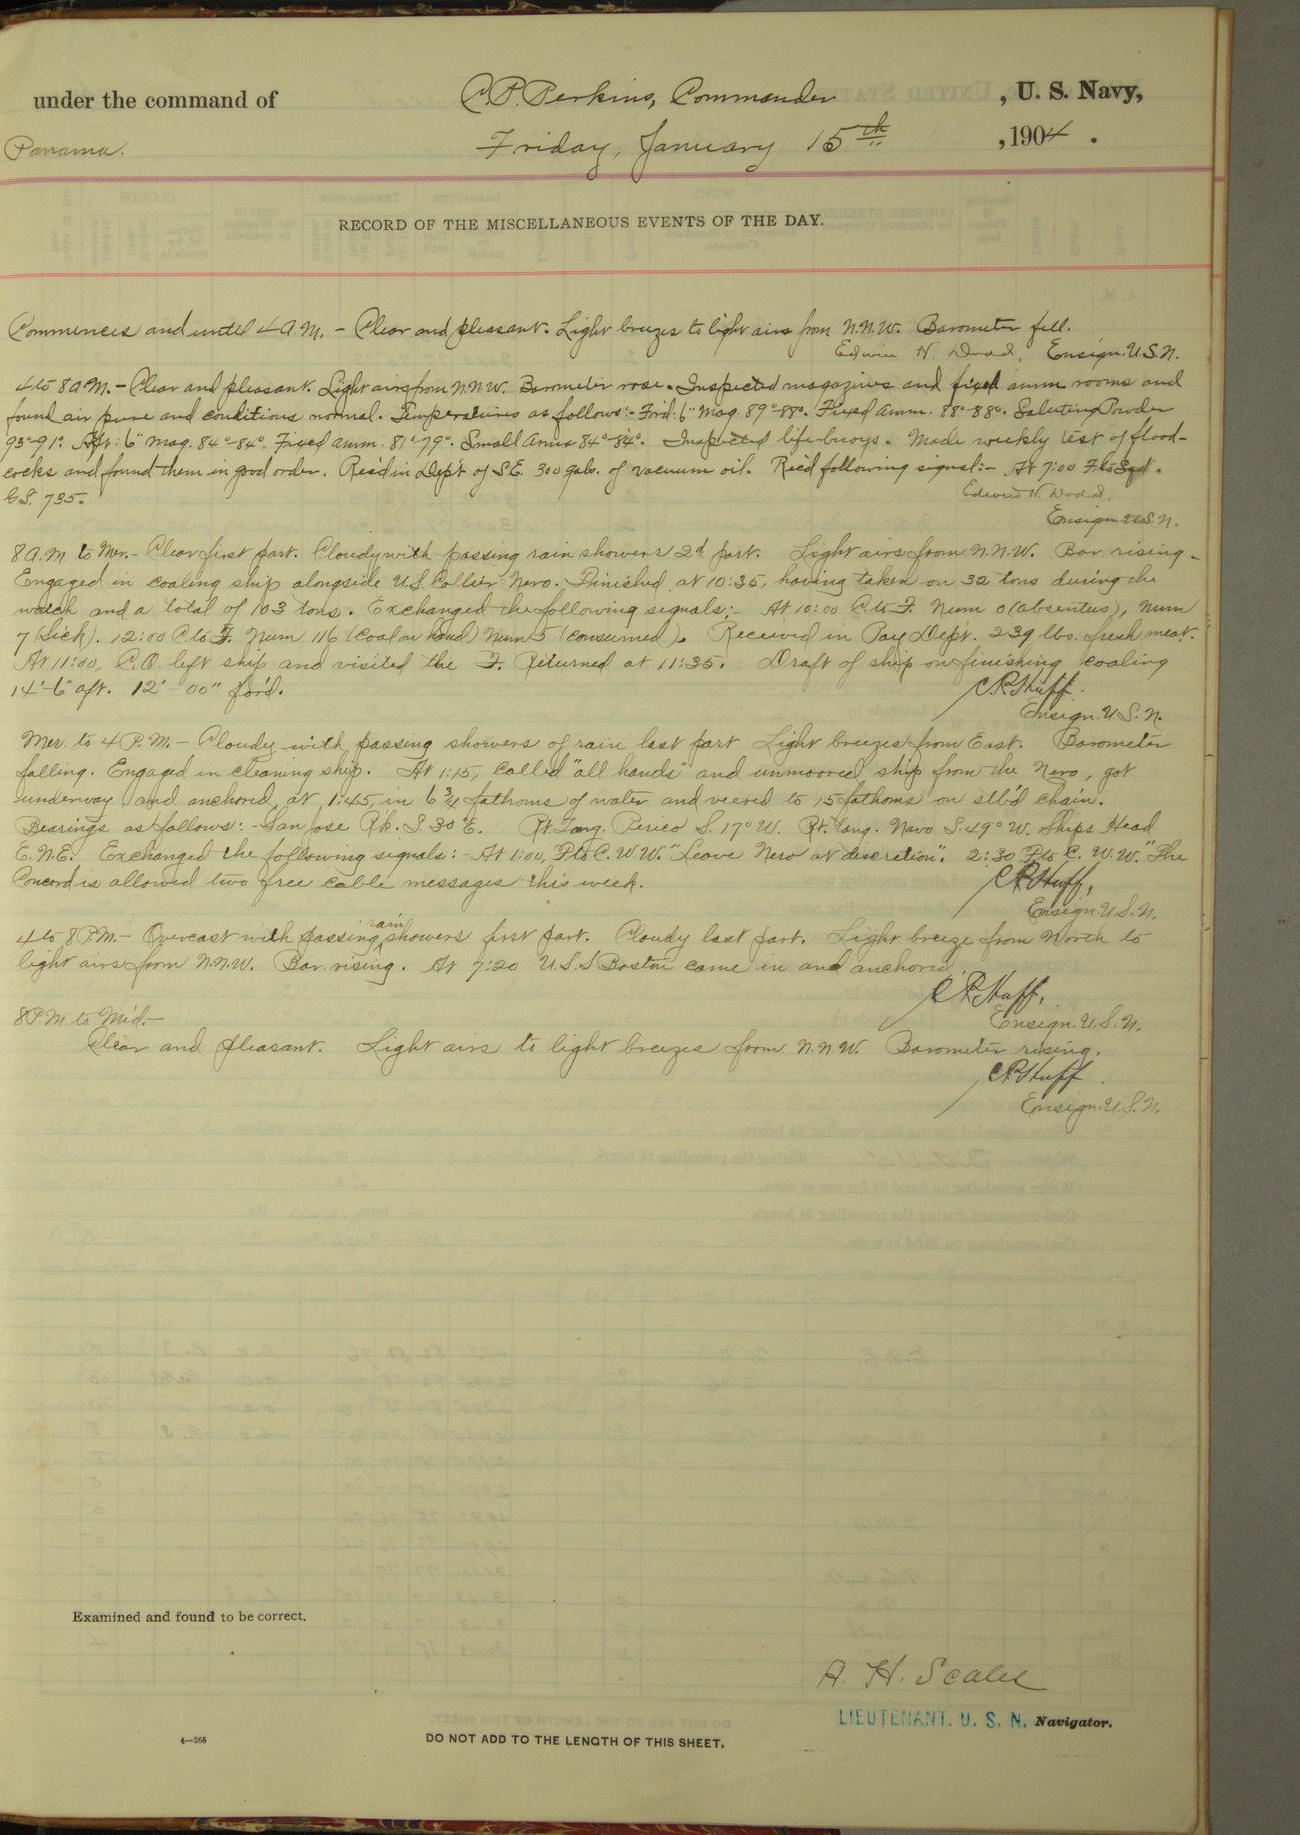 under the command of C.P. Perkins, Commander, U. S. Navy,
Panama. Friday, January 15th, 1904.
RECORD OF THE MISCELLANEOUS EVENTS OF THE DAY.
Commences and until 4 A.M. - Clear and pleasant. Light breezes to light airs from N.N.W. Barometer fell.
Edwin H. Dodd, Ensign. U.S.N.
4 to 8 A.M. - Clear and pleasant. Light airs from N.N.W. Barometer rose. Inspected magazines and fixed amm rooms and
found air pure and conditions normal. Temperatures as follows:- For'd: 6" Mag. 89°-88°. Fixed Amm. 88°-88°. Saluting Powder
93°-91°. Aft: 6" mag. 84°-84°. Fixed amm. 81°-79°. Small Arms 84°-84°. Inspected life-buoys. Made weekly test of flood-
cocks and found them in good order. Rec'd in Dept of S.E. 300 gals. of vacuum oil. Rec'd following signal:- At 7:00 F. to Sqd.
G.S. 735. Edwin H. Dodd.
Ensign U.S.N.
8 A.M. to Mer. - Clear first part. Cloudy with passing rain showers 2d part. Light airs from N.N.W. Bar. rising -
Engaged in coaling ship alongside U.S. Collier Nero. Finished at 10:35, having taken on 32 tons during the
watch and a total of 103 tons. Exchanged the following signals:- At 10:00 C. to F. Num 0 (absentees), Num
7 (Sick). 12:00 C to F. Num 116 (Coal on hand) Num 5 (consumed). Received in Pay Dep't. 239 lbs. fresh meat.
At 11:00, C.O. left ship and visited the F. Returned at 11:35. Draft of ship on finishing coaling
14'-6" aft. 12'-00" for'd. C.R. Huff.
Ensign. U.S.N.
Mer. to 4 P.M. - Cloudy with passing showers of rain last part Light breezes from East. Barometer
falling. Engaged in cleaning ship. At 1:15, called "all hands" and unmoored ship from the Nero, got
underway and anchored at 1:45, in 6 3/4 fathoms of water and veered to 15 fathoms on stb'd chain.
Bearings as follows:- San Jose Rk. S. 30° E. Rt Tang. Perico S. 17° W. Rt. Tang. Navo S. 49° W. Ships Head
E.N.E. Exchanged the following signals:- At 1:00, F to C. W.W. "Leave Nero at discretion". 2:30 F to C. W.W. "The
Concord is allowed two free cable messages this week. C.R. Huff,
Ensign U.S.N.
4 to 8 P.M. - Overcast with passing rain showers first part. Cloudy last part. Light breeze from North to
light airs from N.N.W. Bar. rising. At 7:20 U.S.S. Boston came in and anchored.
C.R. Huff,
Ensign. U.S.N.
8 P.M. to Mid. -
Clear and pleasant. Light airs to light breezes from N.N.W. Barometer rising.
C.R. Huff.
Ensign. U.S.N.
Examined and found to be correct.
A. H. Scales
LIEUTENANT. U. S. N. Navigator.
4—266
DO NOT ADD TO THE LENGTH OF THIS SHEET.